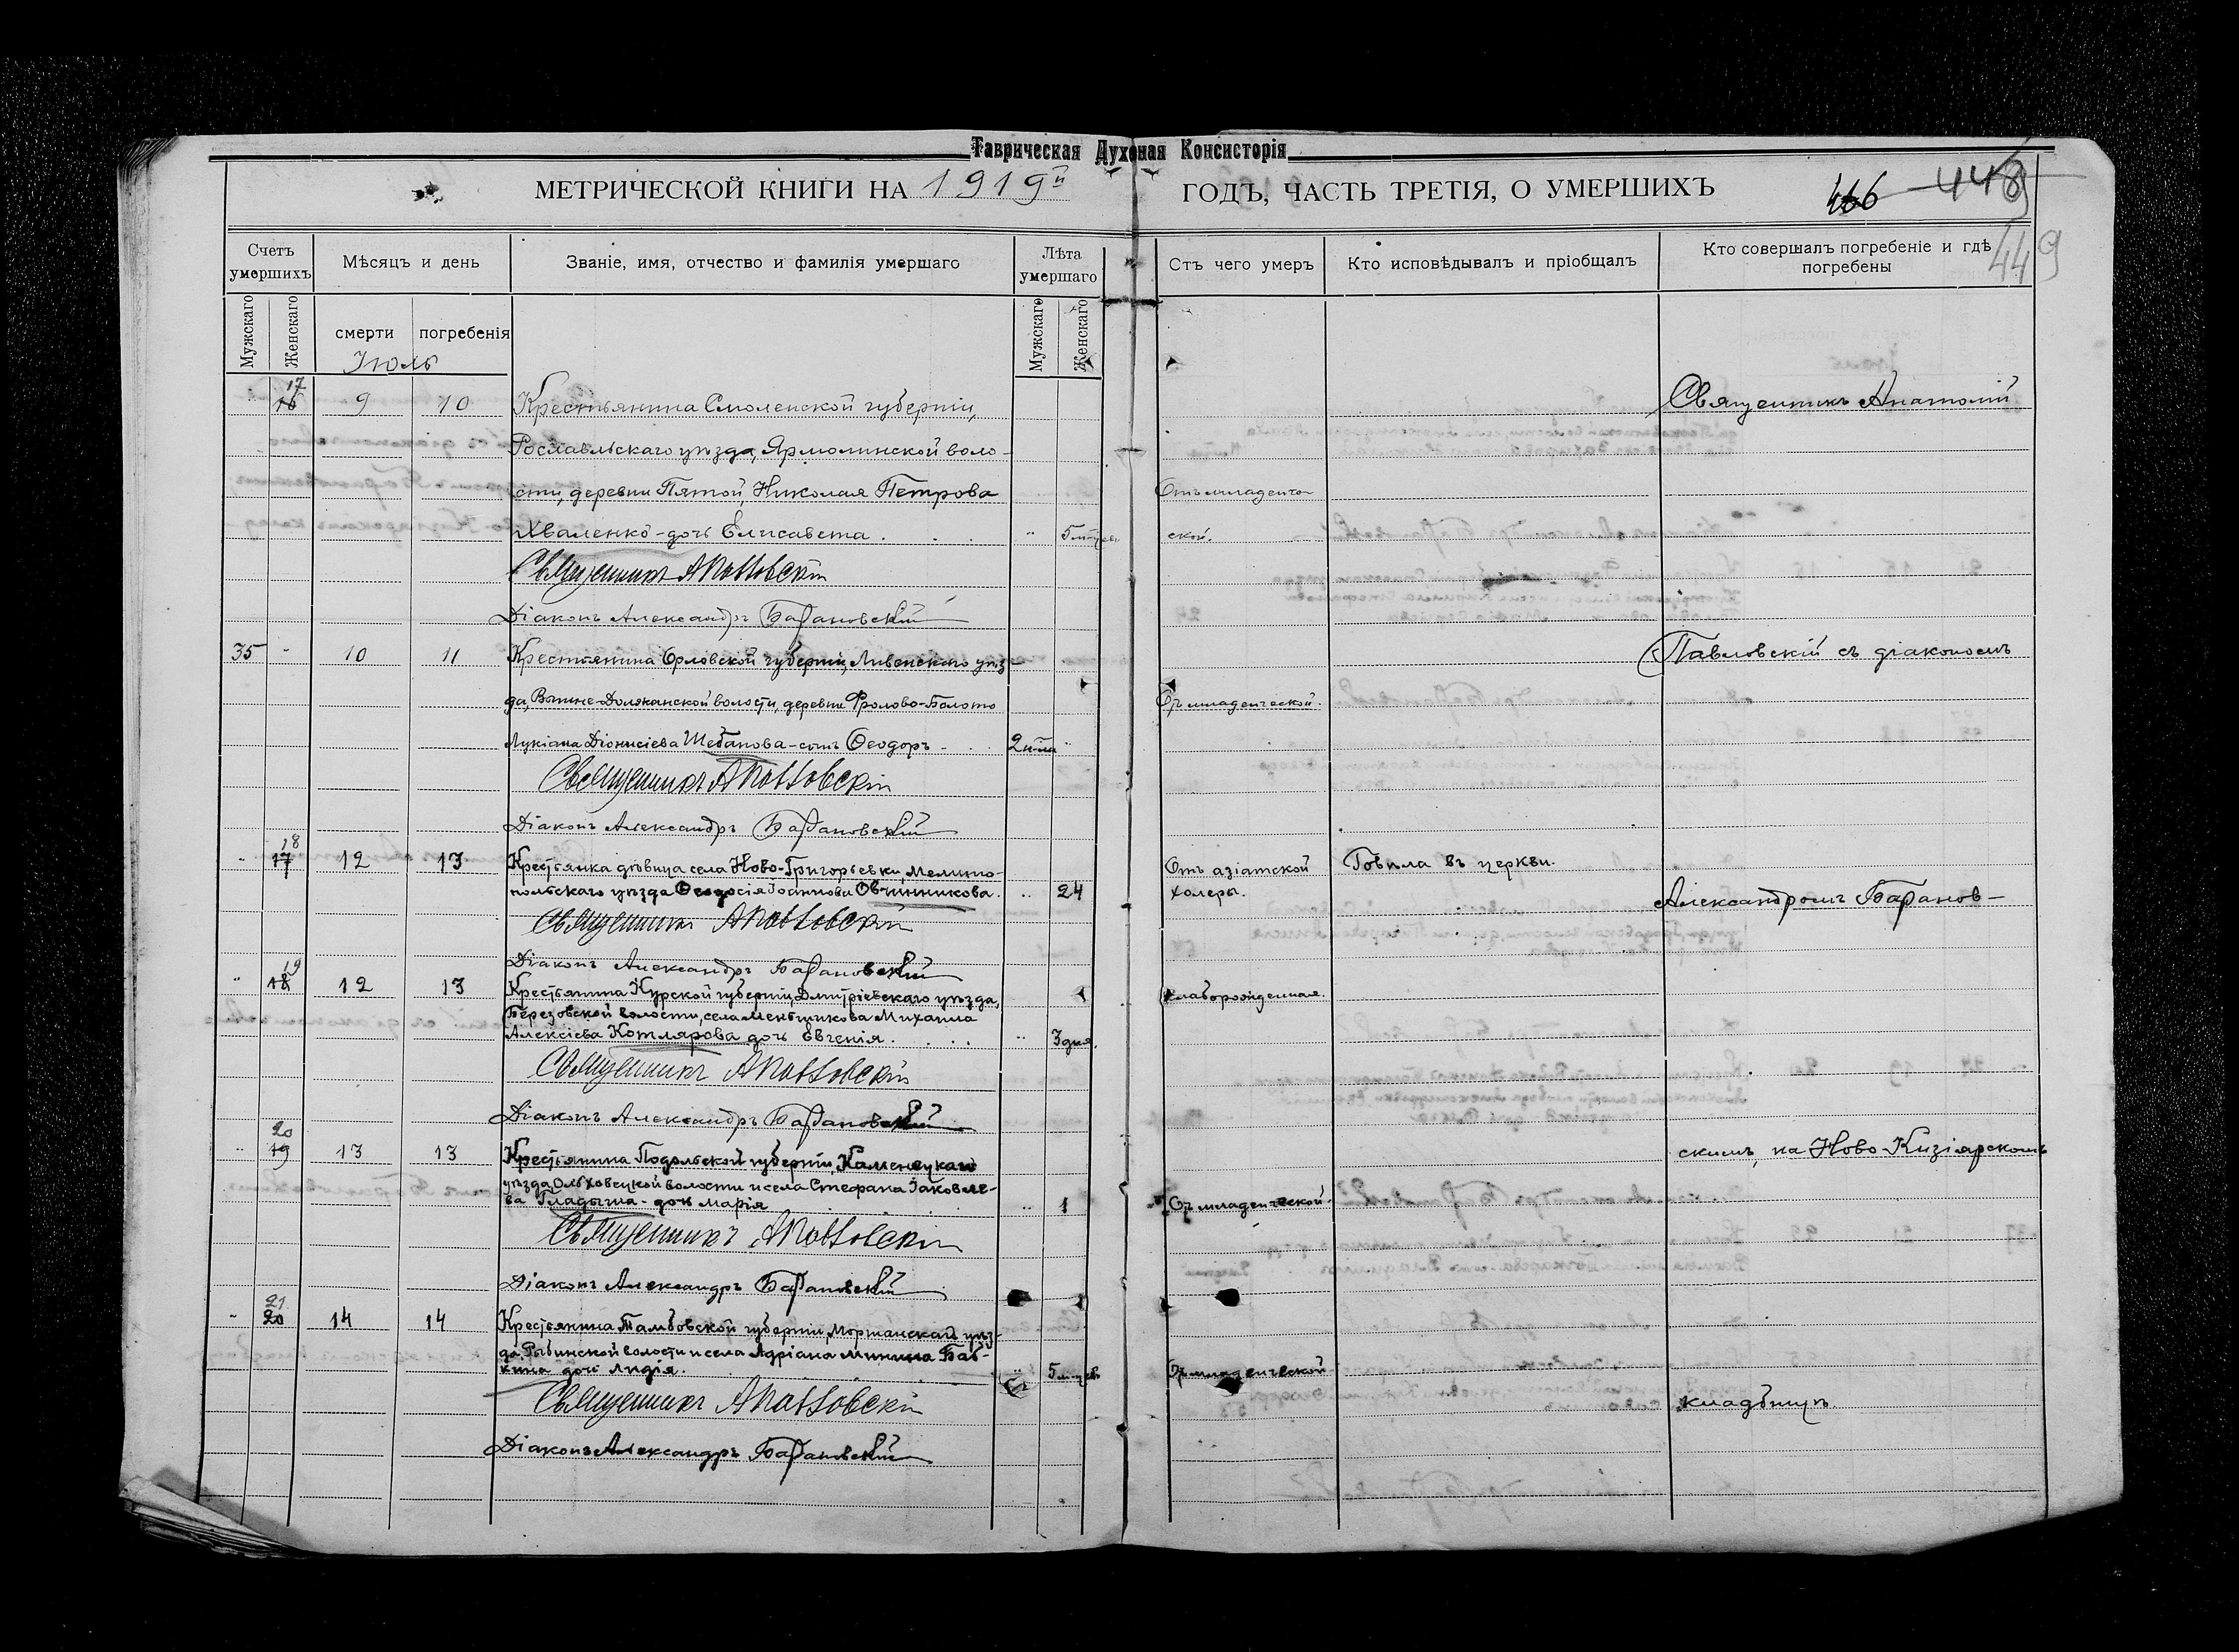 Таврическая Духовная Консисторія
МЕТРИЧЕСКОЙ КНИГИ НА 1919й ГОДЪ, ЧАСТЬ ТРЕТІЯ, О УМЕРШИХЪ
446 448
449
Счетъ умершихъ
Мѣсяцъ и день
Званіе, имя, отчество и фамилія умершаго
Лѣта умершаго
Отъ чего умеръ
Кто исповѣдывалъ и пріобщалъ
Кто совершалъ погребеніе и гдѣ погребены
Мужскаго
Женскаго
смерти
погребенія
Мужскаго
Женскаго
Іюль
17
16 9 10 Крестьянина Смоленской губерніи, Священникъ Анатолій
Рославльскаго уѣзда, Ярмолинской воло-
сти, деревни Пятой, Николая Петрова Отъ младенче-
Хваленко - дочь Елисавета. 5 м-цев ской.
Священникъ АПавловскій
Діаконъ Александръ Барановскій
35 10 11 Крестьянина Орловской губерніи, Ливенскаго уѣз- Павловскій съ діакономъ
да, Вышне-Должанской волости, деревни Фролово-Болото От младенческой.
Лукіана Діонисіева Шебанова - сынъ Ѳеодоръ - 2 н-ли
Священникъ АПавловскій
Діаконъ Александръ Барановскій
18
17 12 13 Крестьянка дѣвица села Ново-Григорьевки, Мелито- Отъ азіатской Говѣла въ церкви.
польскаго уѣзда Ѳеодосія Іоаннова Овчинникова. 24 холеры. Александромъ Баранов-
Священникъ АПавловскій
Діаконъ Александръ Барановскій
19
18 12 13 Крестьянина Курской губерніи, Дмитріевскаго уѣзда, Слаборожденная.
Березовской волости, села Меньшикова Михаила
Алексіева Котлярова дочь Евгенія. 3 дня.
Священникъ АПавловскій
Діаконъ Александръ Барановскій
20
19 13 13 Крестьянина Подольской губерніи, Каменецкаго скимъ, на Ново-Кизіярскомъ
уѣзда, Ольховецкой волости и села Стефана Іаковле-
ва Гладыша - дочь Марія 1 От младенческой.
Священникъ АПавловскій
Діаконъ Александръ Барановскій
21
20 14 14 Крестьянина Тамбовской губерніи, Моршанскаго уѣз-
да, Рыбинской волости и села Адріана Минина Баб-
кина дочь Лидія. 5 м-цевъ От младенческой
Священникъ АПавловскій кладбищѣ.
Діаконъ Александръ Барановскій